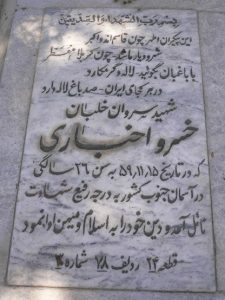 این پیکران اطهر چون قاسم اند و اکبر
شهر و دیار ماشد چون کربلا
با باغبان بگوئید لاله و گر مکارد
در هر کجای ایران صد باغ لاله دارد
شهید سروان خلبان
خسرو اخباری
که در تاریخ ۵۹،۱۱،۱۵ به سن ۲۶ سالگی
در آسمان جنوب کشور به درجه رفیع شهادت
نائل آمد و دین خود را به اسلام و میهن ادا نمود
قطعه ۲۴ ردیف ۷۸ شماره ۳